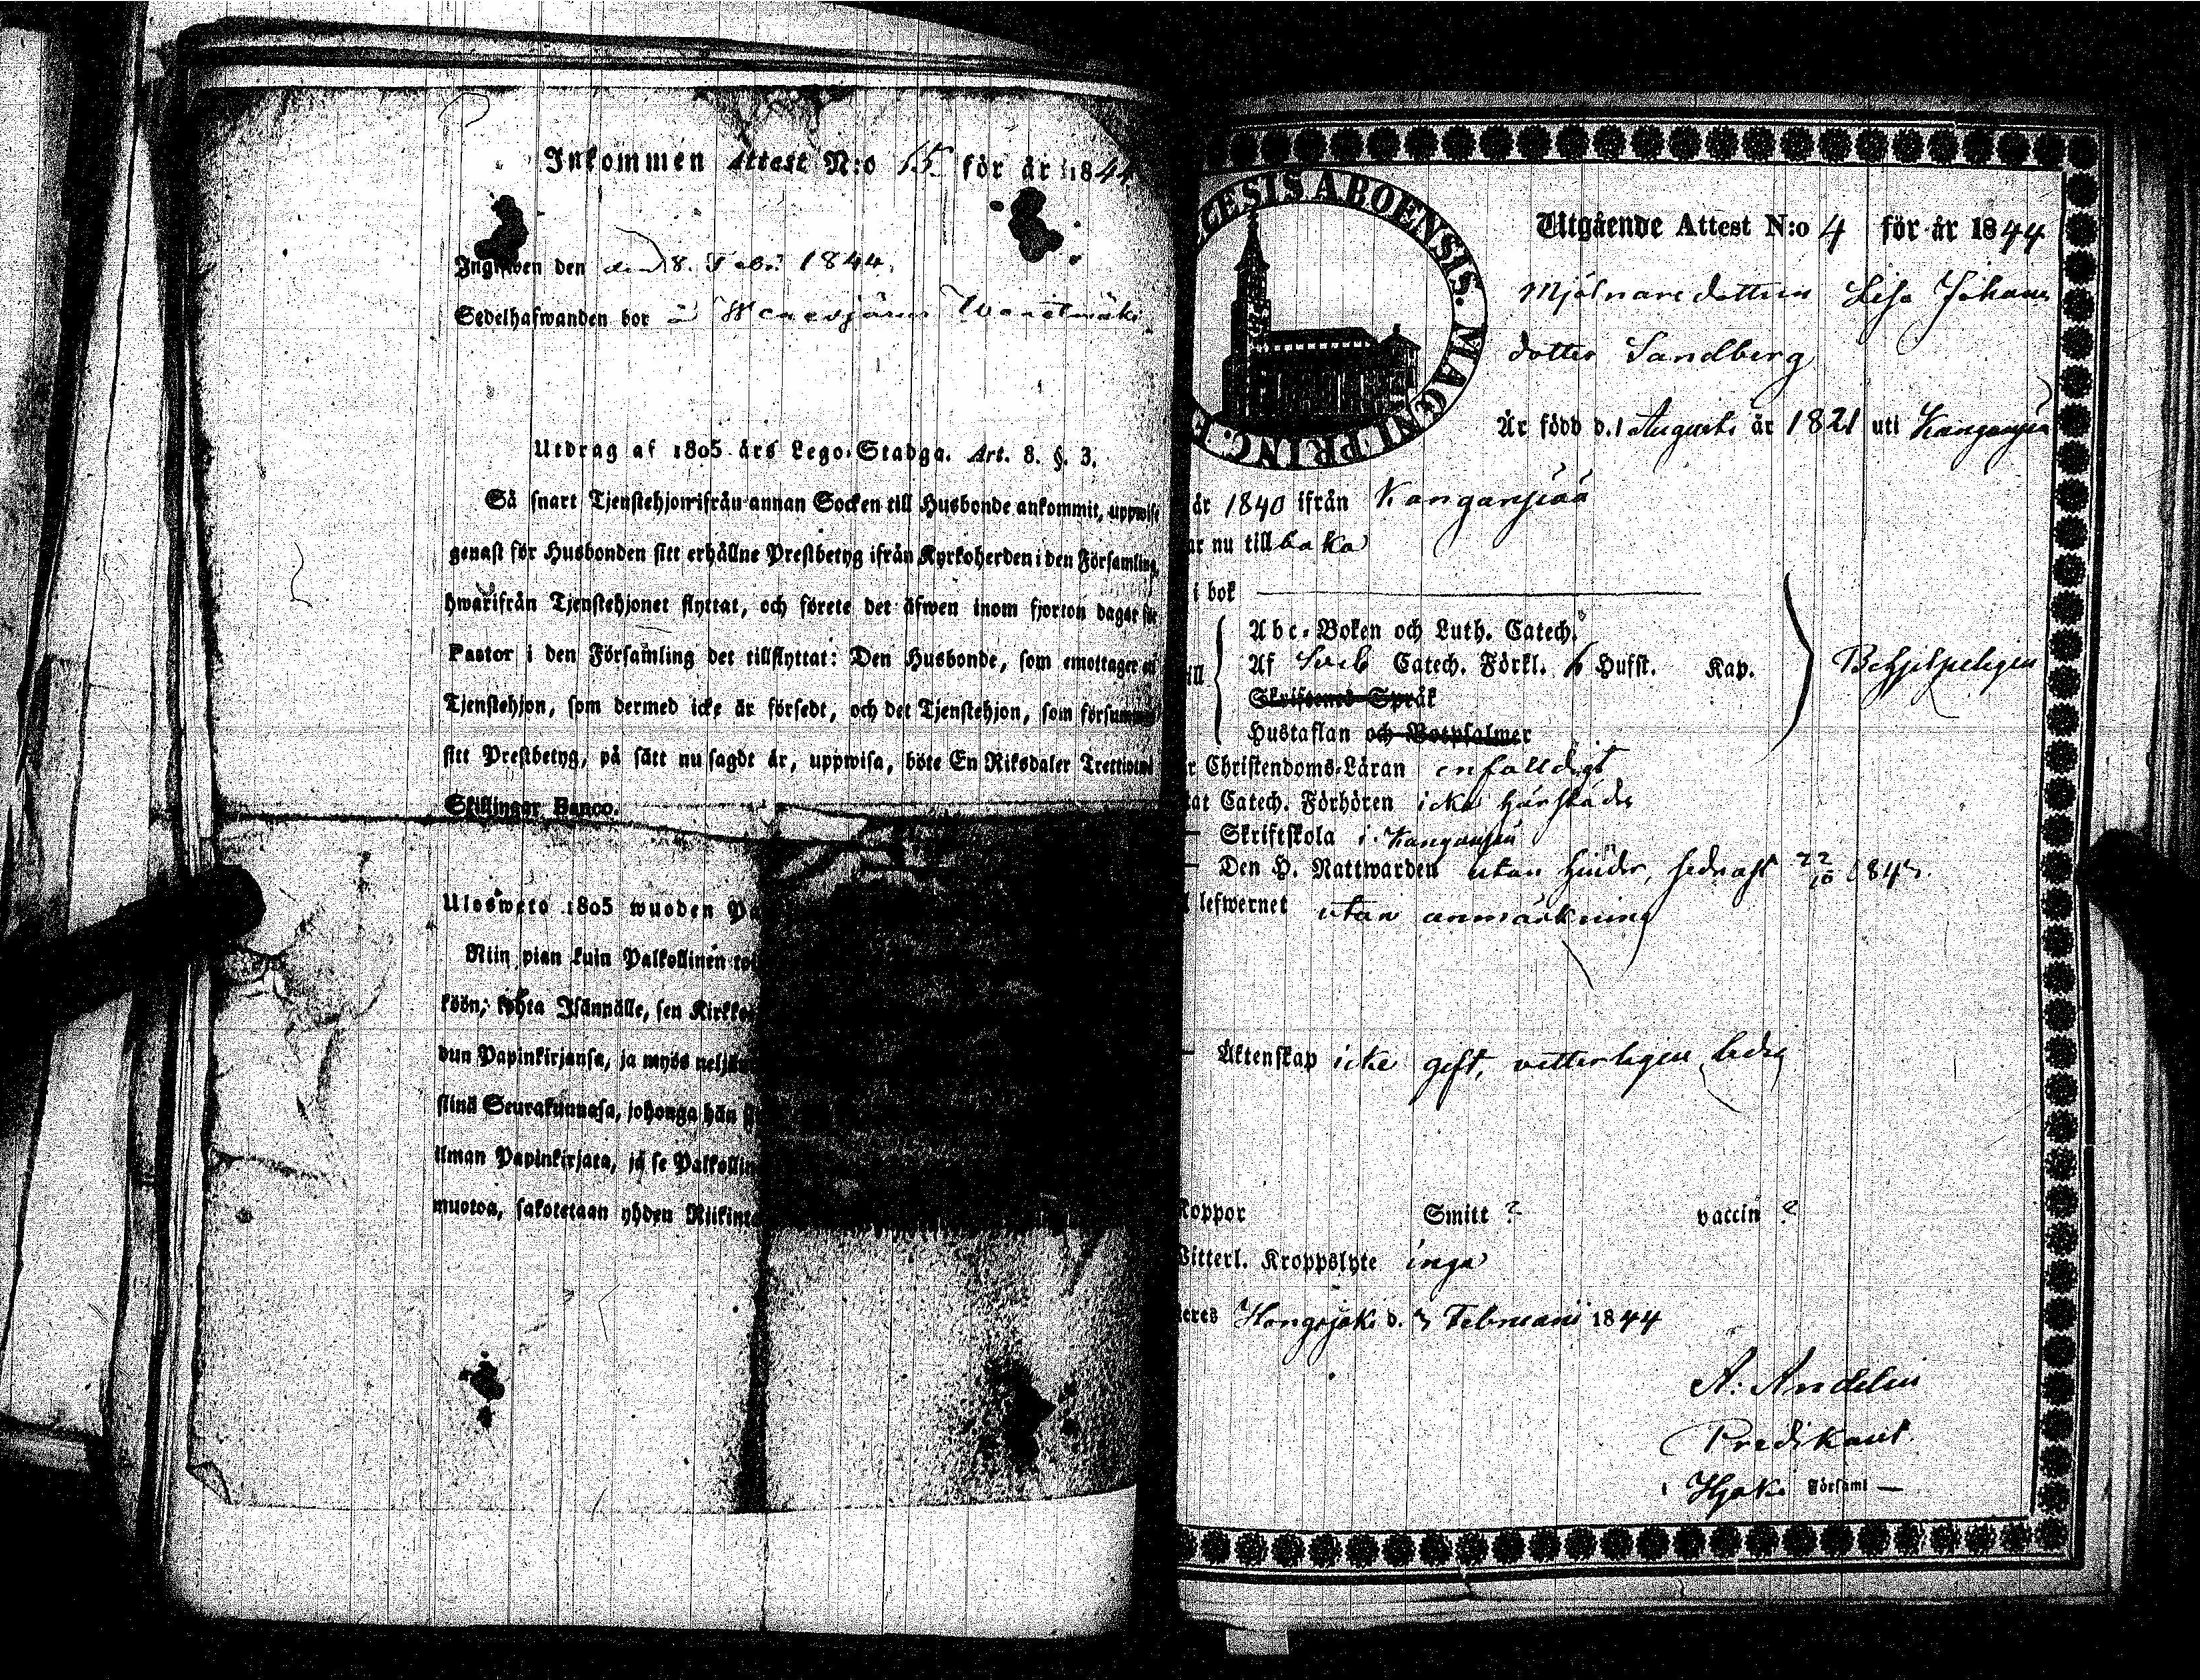 Inkommen Attest N:o 15 för år 1844
Ingifwen den den 8. Febr. 1844.
Sedelhafwanden bor
Utdrag af 1805 års Lego-Stadga. Art. 8. §. 3.
Så snart Tjenstehjon ifrån annan Socken till Husbonde ankommit, uppwise
genast för Husbonden sitt erhållne Prestbetyg ifrån Kyrkoherden i den Församling,
hwarifrån Tjenstehjonet flyttat, och förete det äfwen inom fjorton dagar för
Pastor i den Församling det tillflyttat: Den Husbonde, som emottager
Tjenstehjon, som dermed icke är försedt, och det Tjenstehjon, som försummar
sitt Prestbetyg, på sätt nu sagdt är, uppwisa, böte En Riksdaler
Skillingar Banco.
Ulosweto 1805 wuoden
Niin pian kuin Palkollinen
köön, kohta Isännälle, sen
dun Papinkirjansa, ja myös
siinä Seurakunnasa, johonga hän
ilman Papinkirjata, ja se
muotoa, sakotetaan yhden
CESIS ABOENSIS. MAGNI PRINC. F
Utgående Attest N:o 4 för år 1844
Mjölnaredottren Lisa Johans
dotter Sandberg
Är född d. 1 Augusti år 1821 uti
år 1840 ifrån
ar nu tillbaka
i bok
ill
Abc-Boken och Luth. Catech.
Af Sveb Catech. Förkl. 6 Hufst. Kap.
Skriftenes Språk
Hustaflan och Botpsalmer
r Christendoms-Läran enfaldigt
tat Catech. Förhören icke härstädes
Skriftskola i
Den H. Nattwarden utan hinder, sednast 22/10 184
lefwernet utan anmärkning
Äktenskap icke gift, vetterligen ledig
Koppor Smitt ? vaccin ?
Witterl. Kroppslyte inga
teres Hongojoki d. 7 Februarii 1844
A: Andelin
Predikant
i Hjoki Församl